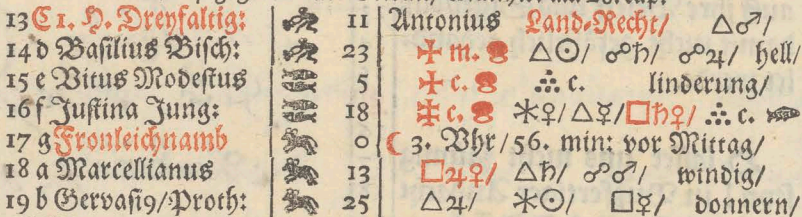 13 C 1. H. Dreyfaltig: 11 Antonius Land-Recht/ △♂/
14 d Basilius Bisch: 23 ✠ m. △☉/ ☍♄/ ☍♃/ hell/
15 e Vitus Modestus 5 ✠ c. ∴ c. linderung/
16 f Justina Jung: 18 ✠ c. ⚹♀/ △☿/ □♄♀/ ∴ c.
17 g Fronleichnamb 0 ☾ 3. Vhr/ 56. min: vor Mittag/
18 a Marcellianus 13 □♃♀/ △♄/ ☍♂/ windig/
19 b Gervasi9/ Proth: 25 △♃/ ⚹☉/ □☿/ donnern/